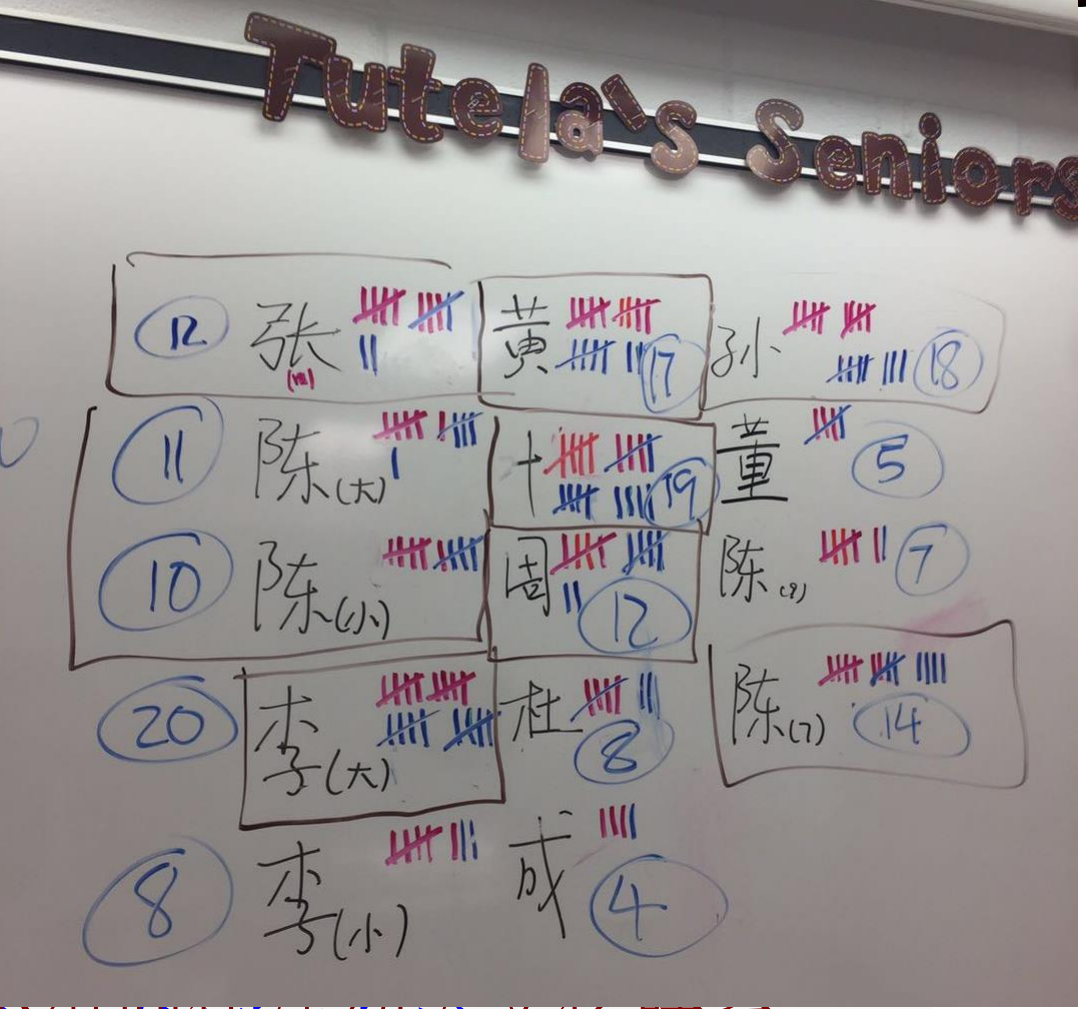 Tutela's Seniors
12 张 黄 17 孙 18
11 陈(大) 十 19 董 5
10 陈(小) 周 12 陈 7
20 李(大) 杜 8 陈(7) 14
8 李(小) 成 4